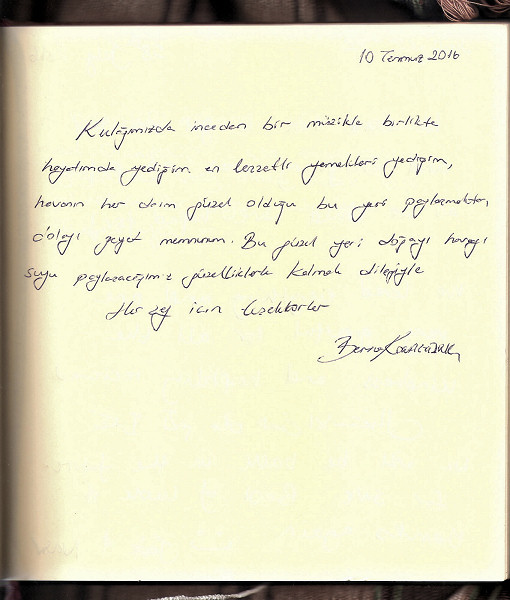 10 Temmuz 2016
Kulağımızda inceden bir müzikle birlikte
hayatımda yediğim en lezzetli yemekleri yediğim,
havanın her daim güzel olduğu bu yeri paylaşmaktan
dolayı gayet memnunum. Bu güzel yeri doğayı havayı
suyu paylaşacağımız güzelliklerle kalmak dileğiyle
Her şey için teşekkürler